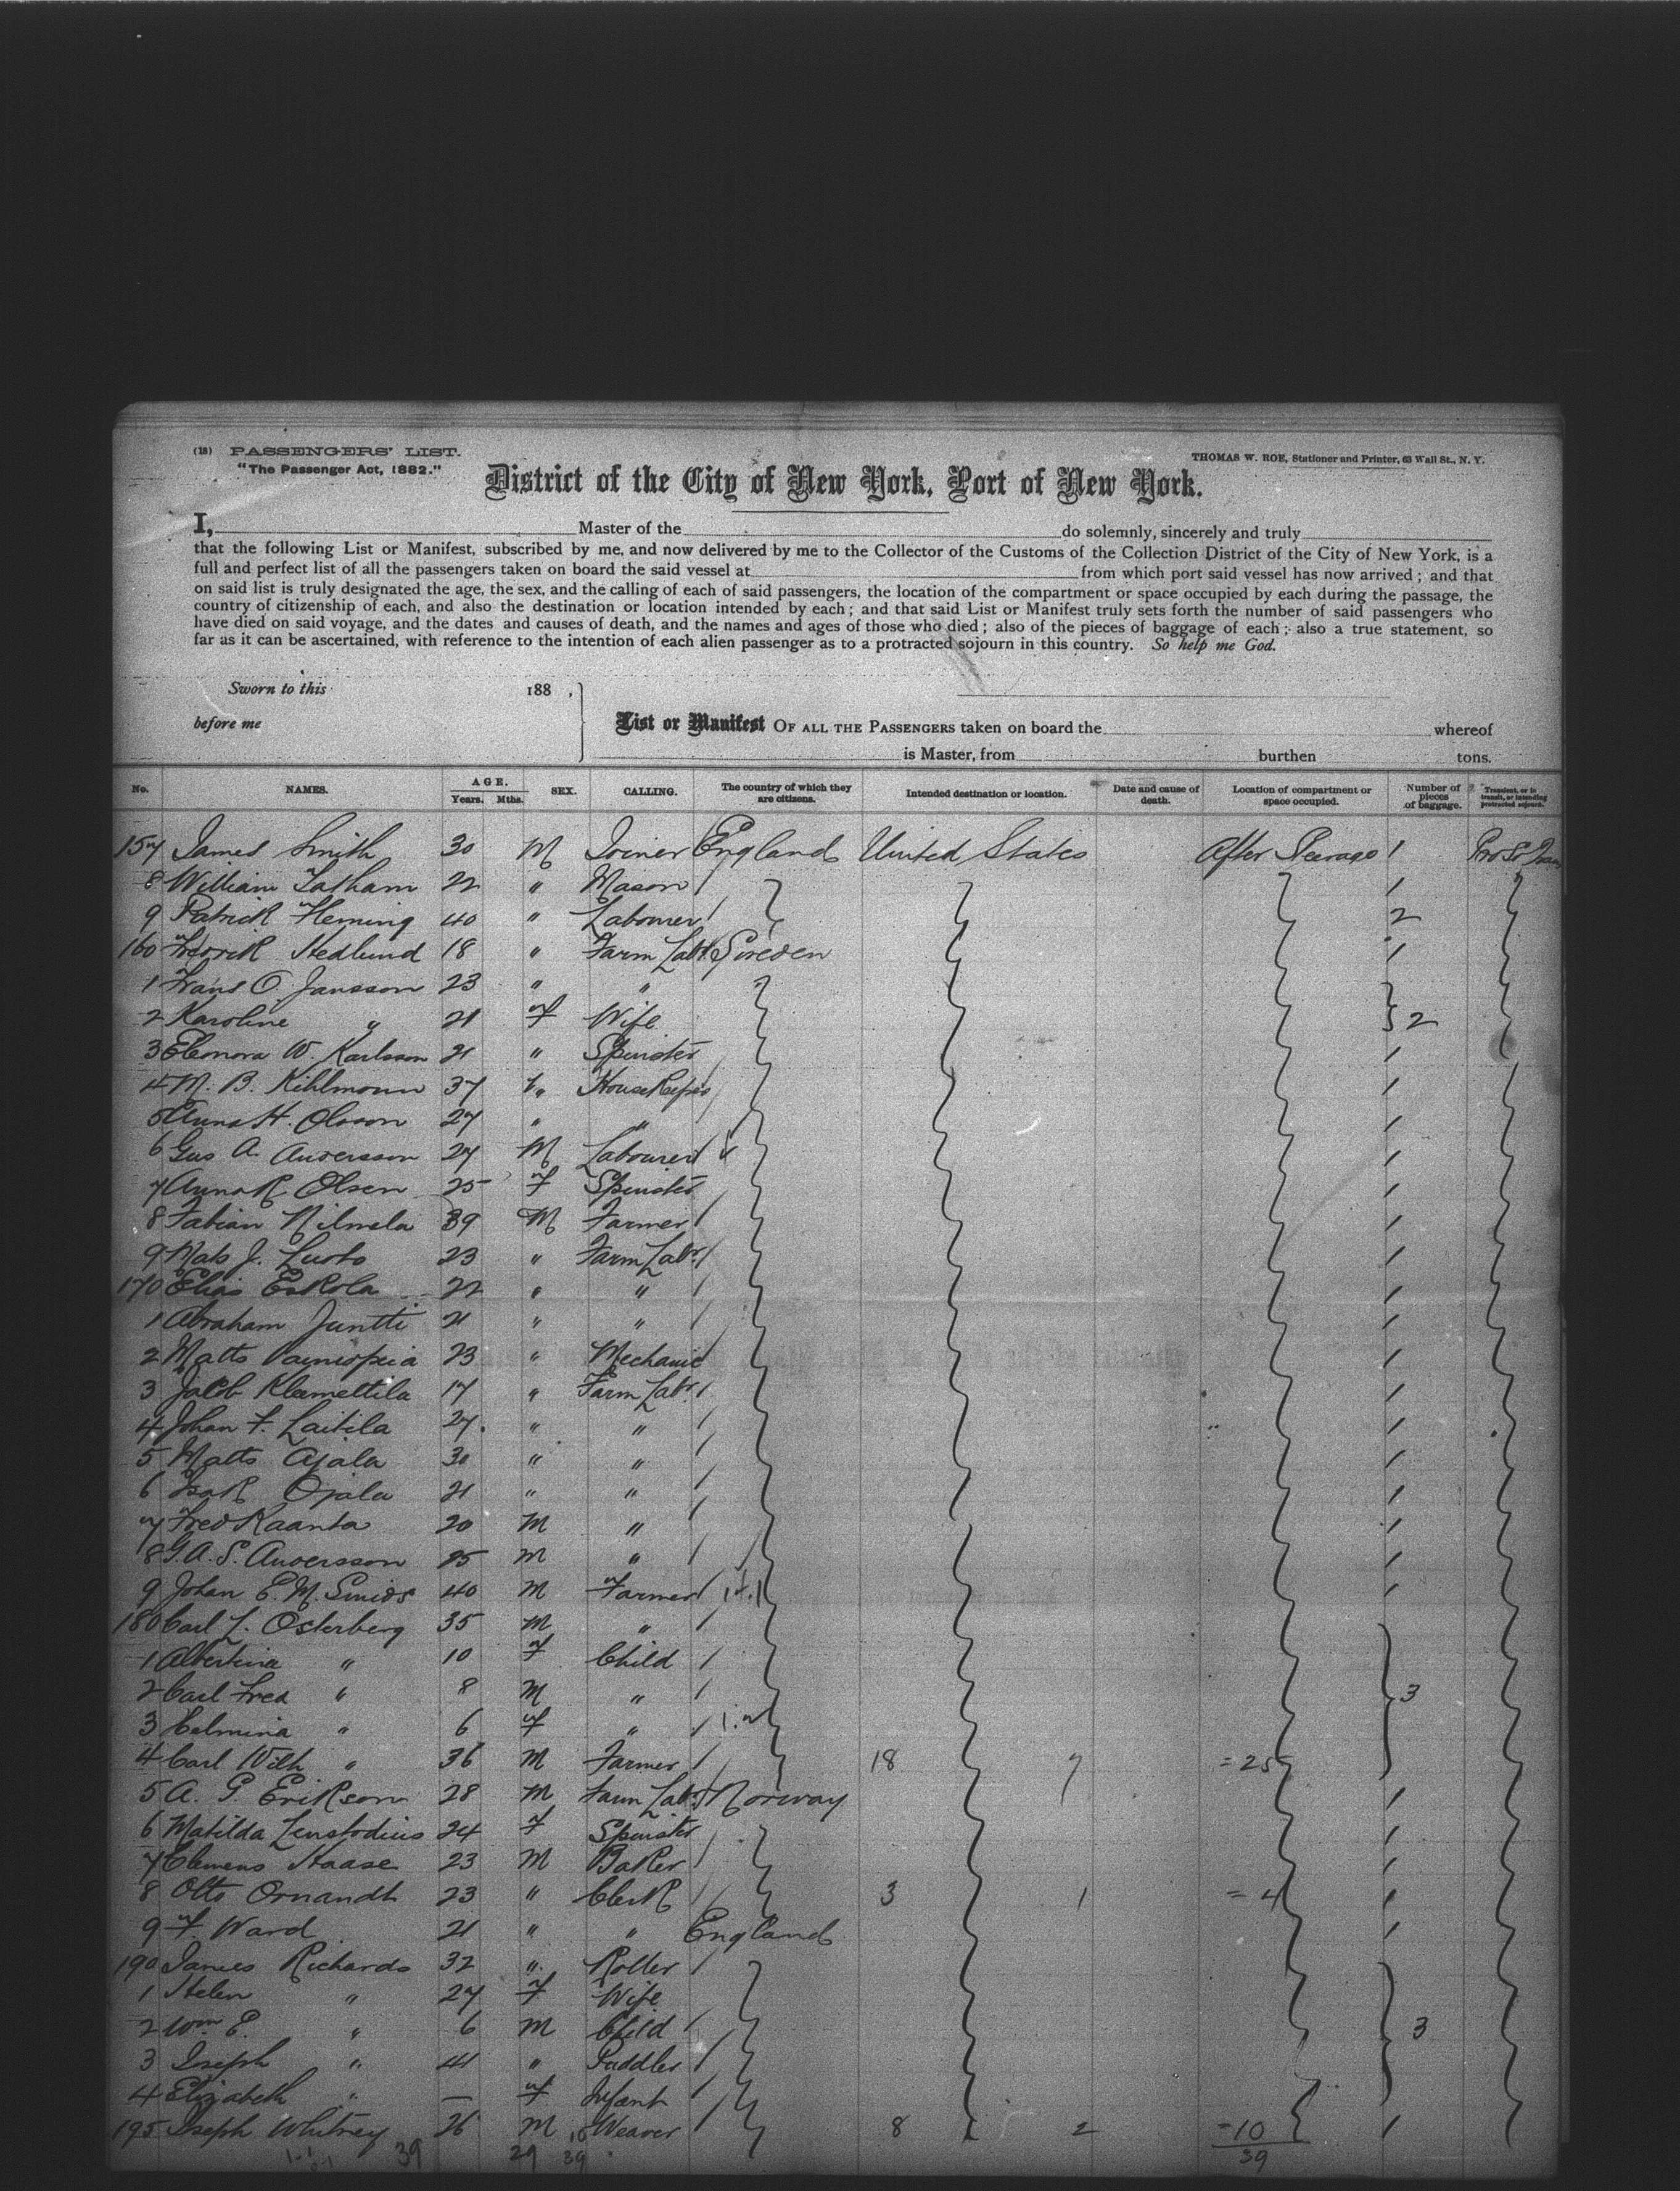 (18) PASSENGERS' LIST.
"The Passenger Act, 1882."
THOMAS W. ROE, Stationer and Printer, 63 Wall St., N. Y.
District of the City of New York, Port of New York.
I, Master of the do solemnly, sincerely and truly
that the following List or Manifest, subscribed by me, and now delivered by me to the Collector of the Customs of the Collection District of the City of New York, is a
full and perfect list of all the passengers taken on board the said vessel at from which port said vessel has now arrived; and that
on said list is truly designated the age, the sex, and the calling of each of said passengers, the location of the compartment or space occupied by each during the passage, the
country of citizenship of each, and also the destination or location intended by each; and that said List or Manifest truly sets forth the number of said passengers who
have died on said voyage, and the dates and causes of death, and the names and ages of those who died; also of the pieces of baggage of each; also a true statement, so
far as it can be ascertained, with reference to the intention of each alien passenger as to a protracted sojourn in this country. So help me God.
Sworn to this 188 .
before me
List or Manifest OF ALL THE PASSENGERS taken on board the whereof
is Master, from burthen tons.
No. NAMES. AGE. Years. Mths. SEX. CALLING. The country of which they are citizens. Intended destination or location. Date and cause of death. Location of compartment or space occupied. Number of pieces of baggage. Transient, or in transit, or intending protracted sojourn.
157 James Smith 30 M Joiner England United States After Steerage 1
8 William Latham 22 " Mason 1
9 Patrick Fleming 40 " Labourer 2
160 Fredrick Hedlund 18 " Farm Labr Sweden 1
1 Frans O. Jansson 23 " "
2 Karoline " 21 F Wife 2
3 Eleonora W. Karlsson 21 " Spinster 1
4 M. B. Kihlmann 37 " HouseKeeper 1
5 Anna H. Olsson 27 " " 1
6 Gus A. Andersson 27 M Labourer 1
7 Anna K Olsen 25 F Spinster 1
8 Fabian Nilmela 39 M Farmer 1
9 Mats J. Lusto 23 " Farm Labr. 1
170 Elias Eskola 22 " " 1
1 Abraham Juntti 21 " " 1
2 Matts 23 " Mechanic 1
3 Jacob Klemettila 17 " Farm Labr. 1
4 Johan F. Laitila 27 " " 1
5 Matts Ajala 30 " " 1
6 Isak Ojala 21 " " 1
7 Fred Kaanta 20 M " 1
8 G. A. S. Andersson 25 M " 1
9 Johan E. M. Smids 40 M Farmer 1
180 Carl L. Osterberg 35 M "
1 Albertina " 10 F Child
2 Carl Fred " 8 M " 3
3 Helmina " 6 F "
4 Carl Wilh " 36 M Farmer 18 7 = 25
5 A. G. Erikson 28 M Farm Labr. Norway 1
6 Matilda 24 F Spinster 1
7 Clemens Haase 23 M Baker 1
8 Otto Ornandt 23 " Clerk 3 1 = 4 1
9 F. Ward 21 " " England 1
190 James Richards 32 " Roller
1 Helen " 27 F Wife
2 Wm E. " 6 M Child 3
3 Joseph " 41 " Puddler
4 Elizabeth " — F Infant
195 Joseph Whitney 26 M Weaver 8 2 = 10 1
39 29 10 39 39